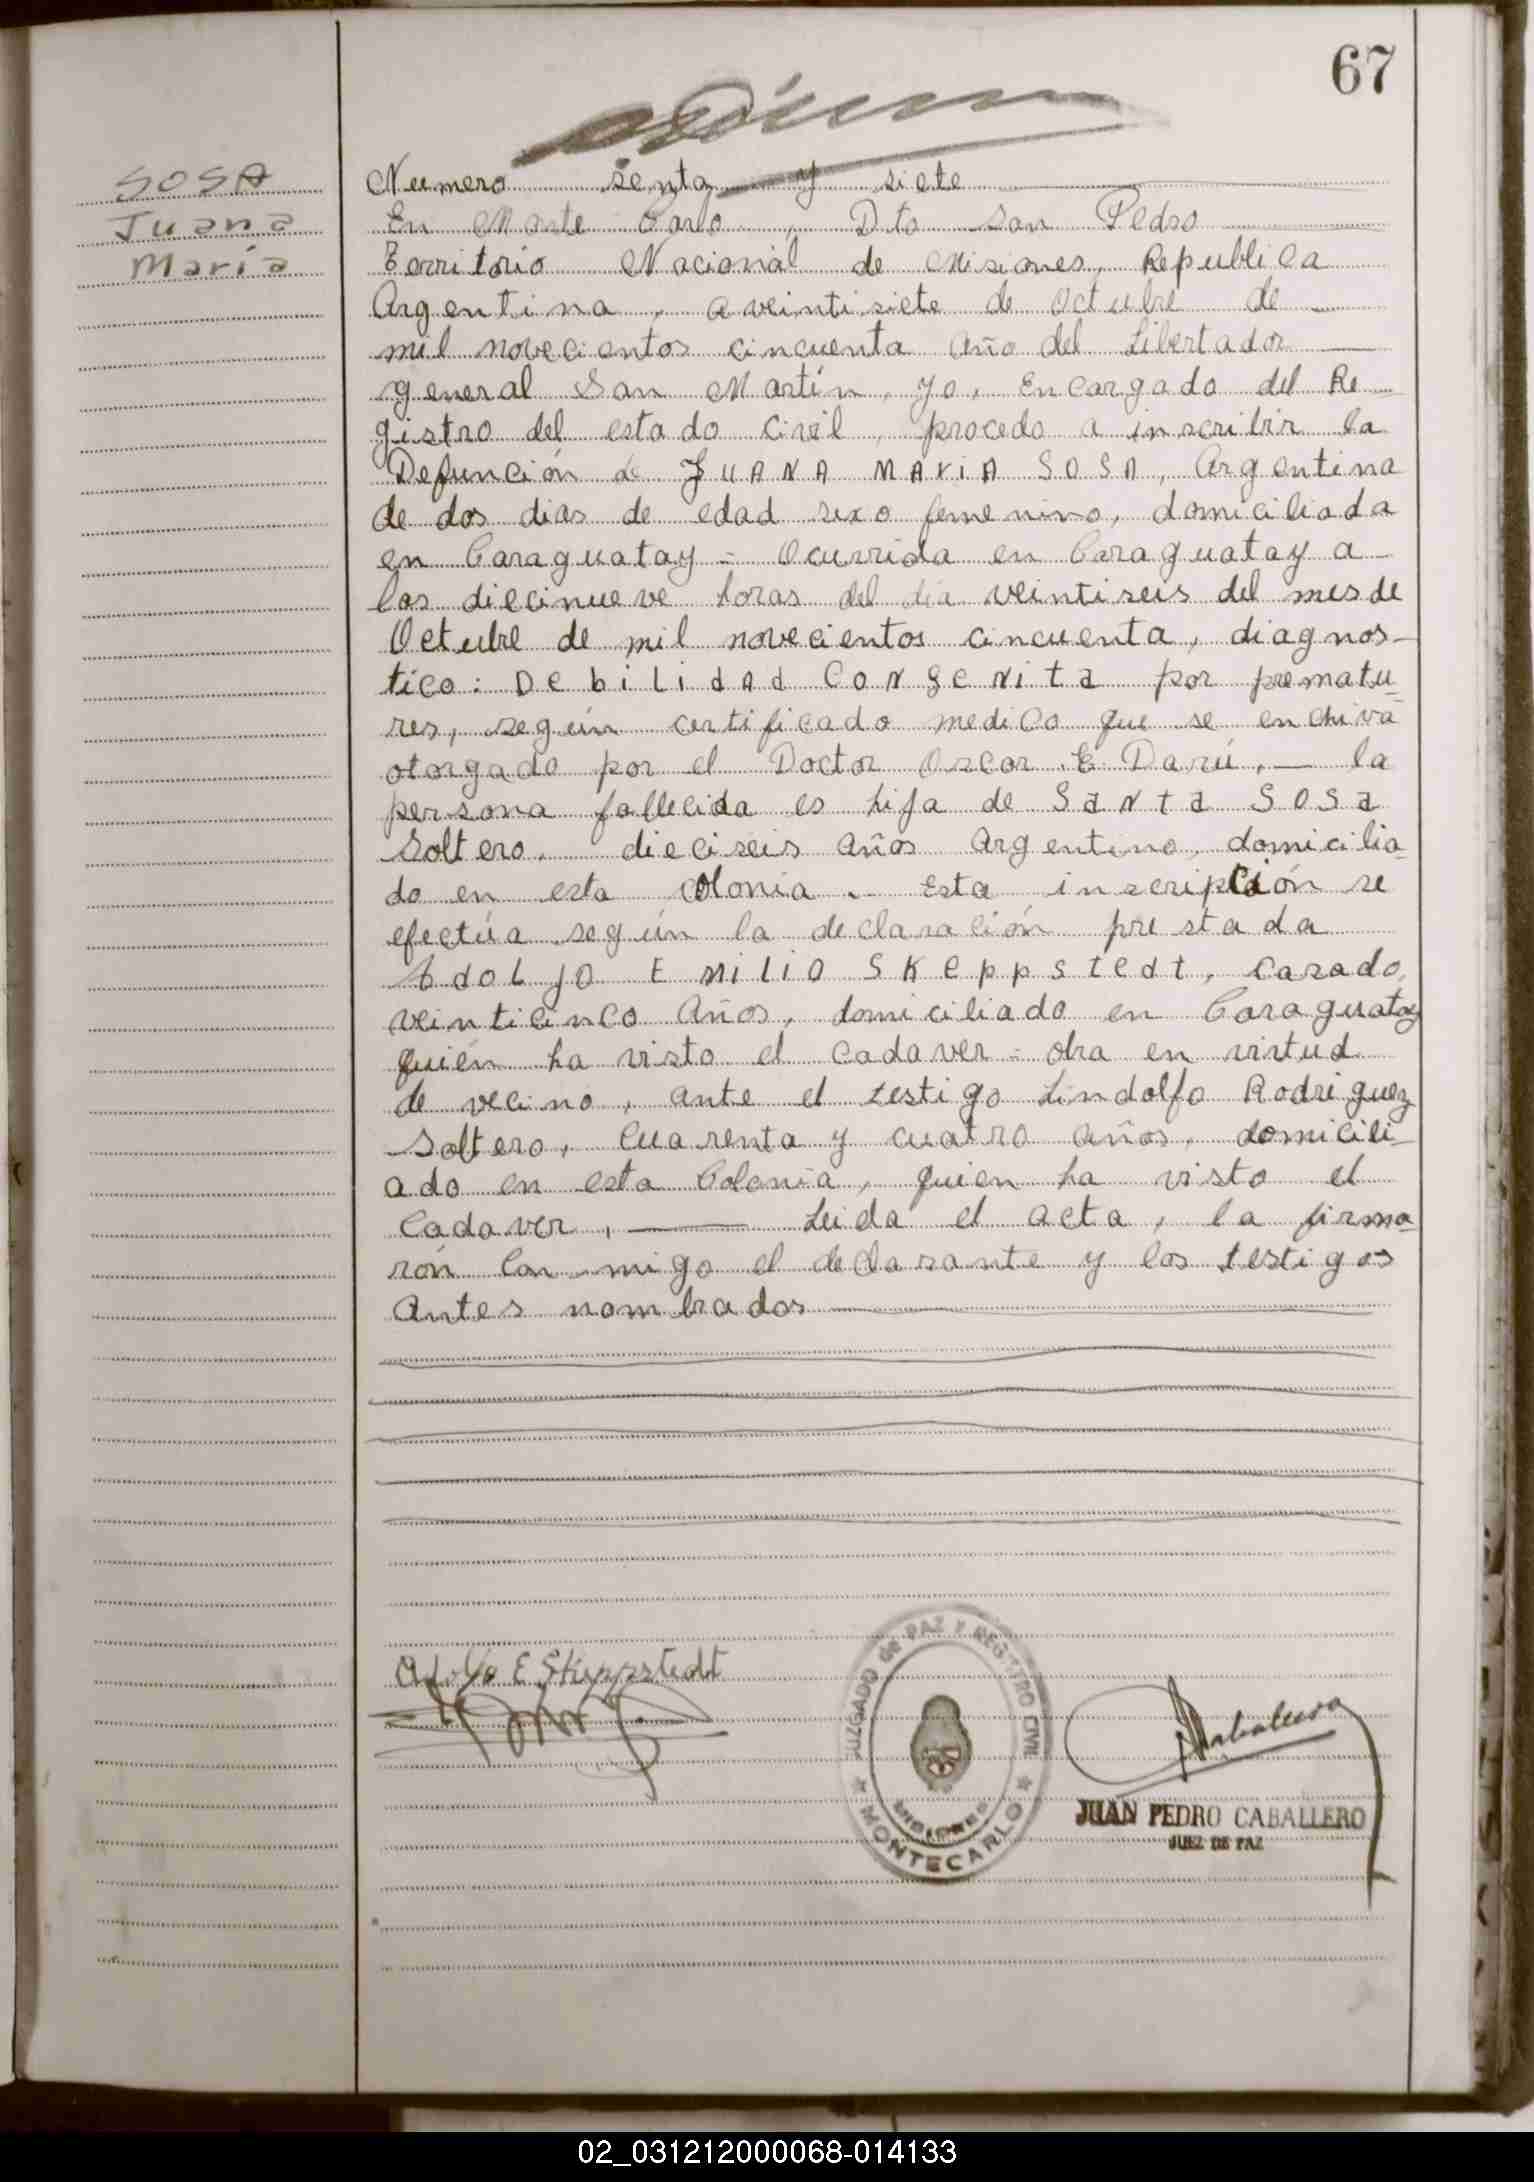 67
SOSA
Juana
María
Numero senta y siete
En Monte Carlo, Dto San Pedro
Territorio Nacional de Misiones, Republica
Argentina, a veintisiete de Octubre de
mil novecientos cincuenta año del Libertador
general San Martín, yo, Encargado del Re
gistro del estado civil, procedo a inscribir la
Defunción de JUANA MARIA SOSA, Argentina
de dos dias de edad sexo femenino, domiciliada
en Caraguatay = Ocurrida en Caraguatay a
las diecinueve horas del dia veintiseis del mes de
Octubre de mil novecientos cincuenta, diagnos-
tico: Debilidad Congenita por prematu-
res, según certificado medico que se enchiva
otorgado por el Doctor Oscar E Darú, — la
persona fallecida es hija de Santa Sosa
Soltero, dieciseis años Argentino, domicilia-
do en esta colonia. Esta inscripción se
efectúa según la declaración prestada
Adolfo Emilio Skeppstedt, casado,
veinticinco años, domiciliado en Caraguatay
quién ha visto el cadaver = obra en virtud
de vecino, ante el testigo Lindolfo Rodriguez
Soltero, cuarenta y cuatro años, domicili-
ado en esta Colonia, quien ha visto el
cadaver, — Leida el acta, la firma-
rón con migo el declarante y los testigos
Antes nombrados
Adolfo E Skeppstedt
JUZGADO de PAZ Y REGISTRO CIVIL
MISIONES
MONTECARLO
JUAN PEDRO CABALLERO
JUEZ DE PAZ
02_031212000068-014133